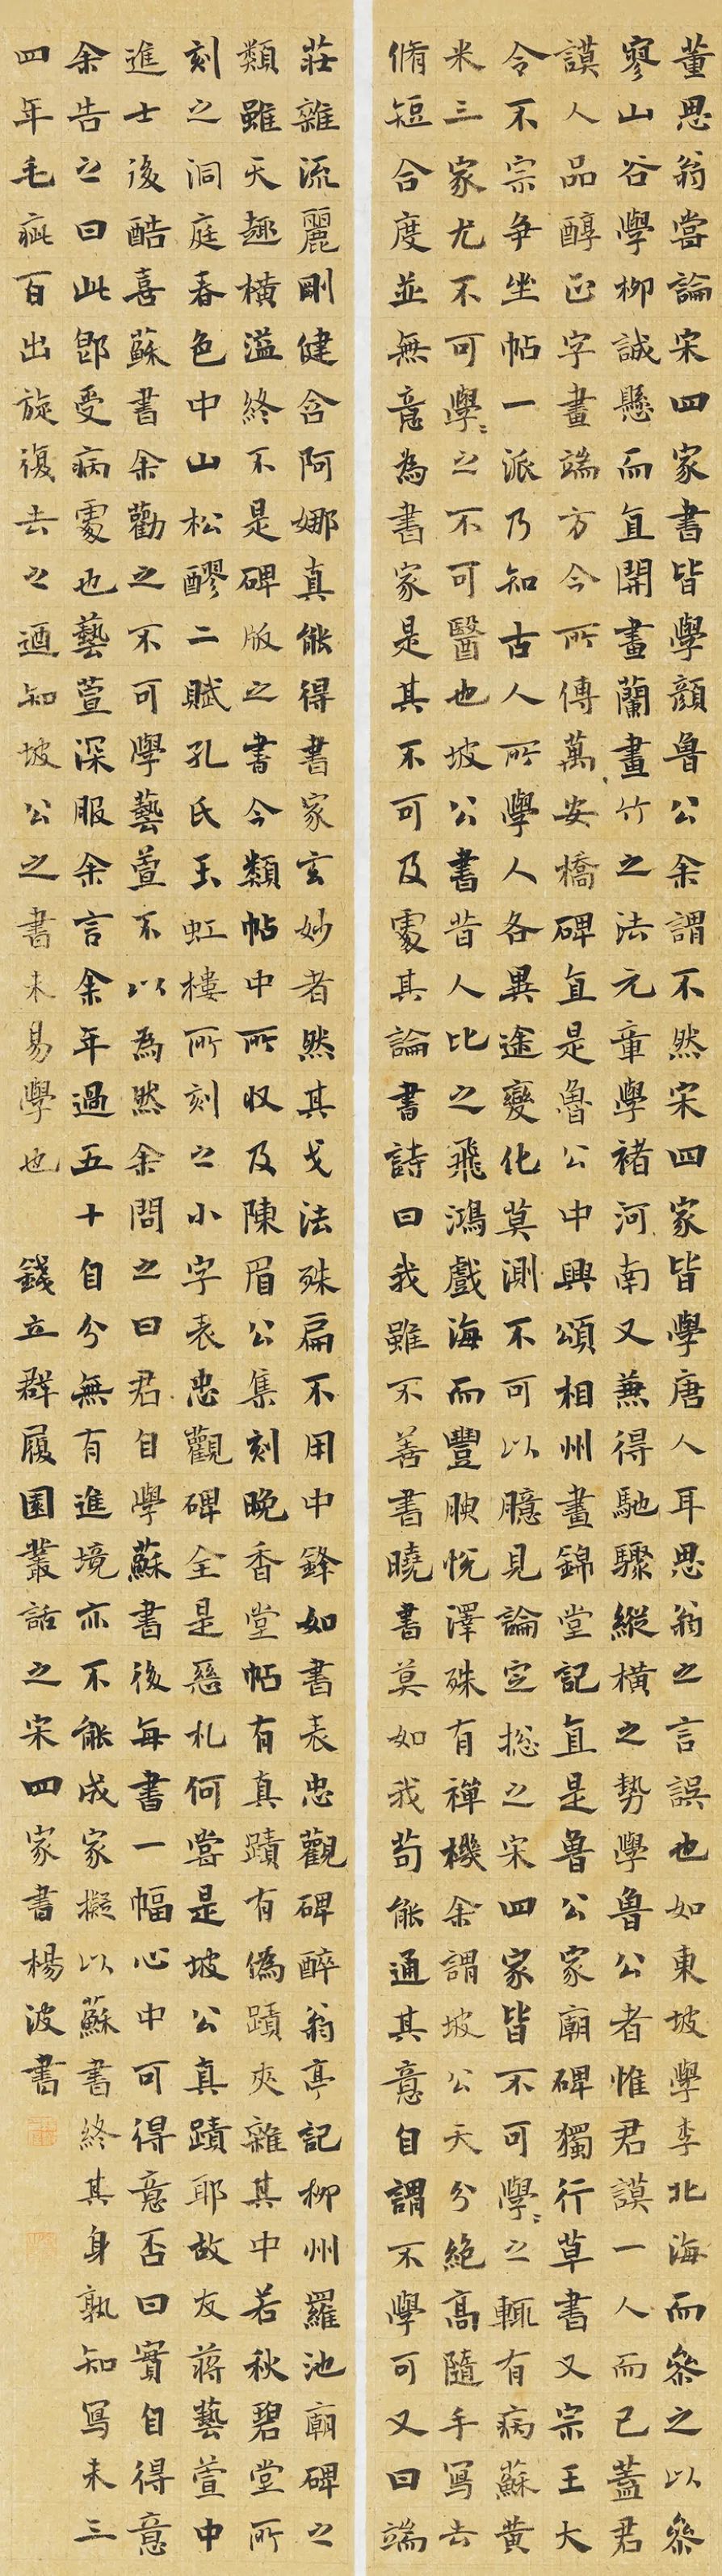 董思翁嘗論宋四家書皆學顏魯公余謂不然宋四家皆學唐人耳思翁之言誤也如東坡學李北海而叅之以叅
寥山谷學柳誠懸而直開畫蘭畫竹之法元章學褚河南又兼得馳驟縱橫之勢學魯公者惟君謨一人而已蓋君
謨人品醇正字畫端方今所傳萬安橋碑直是魯公中興頌相州晝錦堂記直是魯公家廟碑獨行草書又宗王大
令不宗争坐帖一派乃知古人所學人各異途變化莫測不可以臆見論定捴之宋四家皆不可學〻之輒有病蘇黄
米三家尤不可學〻之不可醫也坡公書昔人比之飛鴻戲海而豐腴悦澤殊有禪機余謂坡公天分絶高隨手寫去
脩短合度並無意為書家是其不可及處其論書詩曰我雖不善書曉書莫如我苟能通其意自謂不學可又曰端
莊雜流麗剛健含阿娜真能得書家玄妙者然其戈法殊扁不用中鋒如書表忠觀碑醉翁亭記柳州羅池廟碑之
類雖天趣橫溢終不是碑版之書今類帖中所收及陳眉公集刻晚香堂帖有真蹟有偽蹟夾雜其中若秋碧堂所
刻之洞庭春色中山松醪二賦孔氏玉虹樓所刻之小字表忠觀碑全是惡札何嘗是坡公真蹟耶故友蔣藝萱中
進士後酷喜蘇書余勸之不可學藝萱不以為然余問之曰君自學蘇書後每書一幅心中可得意否曰實自得意
余告之曰此卽受病處也藝萱深服余言余年過五十自分無有進境亦不能成家擬以蘇書終其身孰知寫未三
四年毛疵百出旋復去之迺知坡公之書未易學也 錢立群履園叢話之宋四家書楊波書